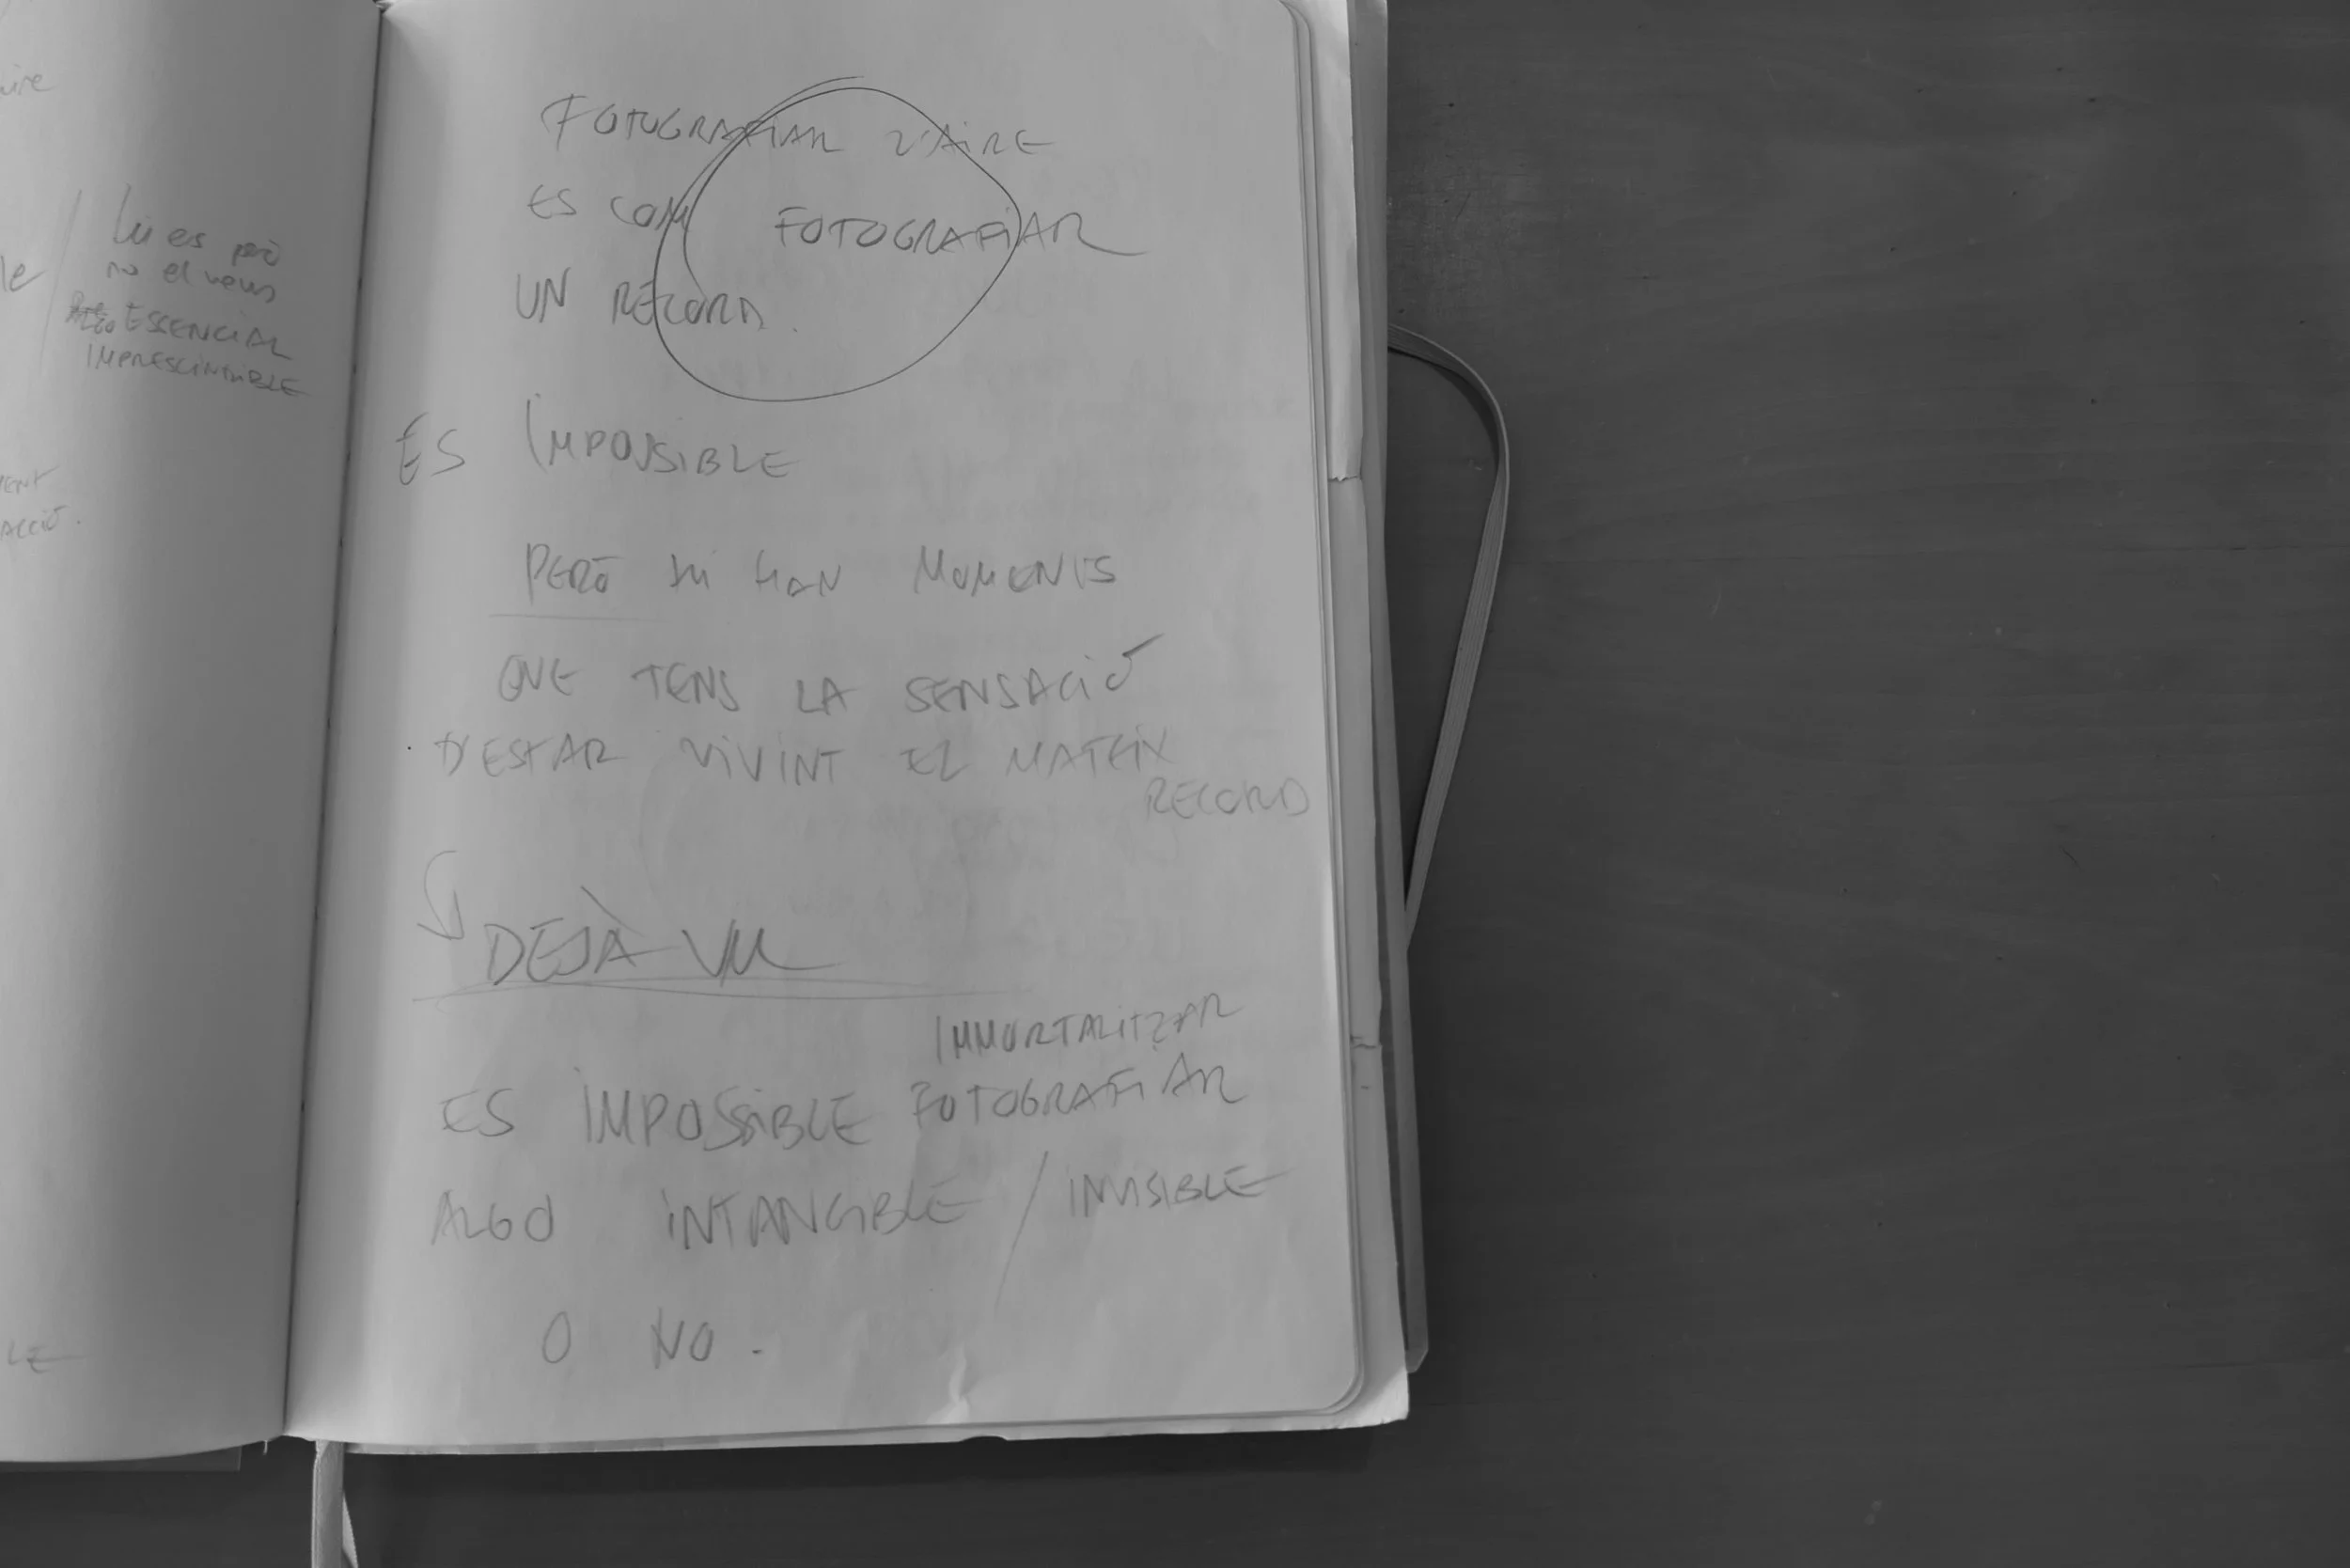 aire
hi es però
no el veus
ESSENCIAL
IMPRESCINDIBLE
ACCIÓ.
LE
FOTOGRAFIAR L'AIRE
ES COM FOTOGRAFIAR
UN RECORD.
ES IMPOSSIBLE
PERÒ HI HAN MOMENTS
QUE TENS LA SENSACIÓ
D'ESTAR VIVINT EL MATEIX
RECORD
DEJÀ VU
IMMORTALITZAR
ES IMPOSSIBLE FOTOGRAFIAR
ALGO INTANGIBLE / INVISIBLE
O NO.